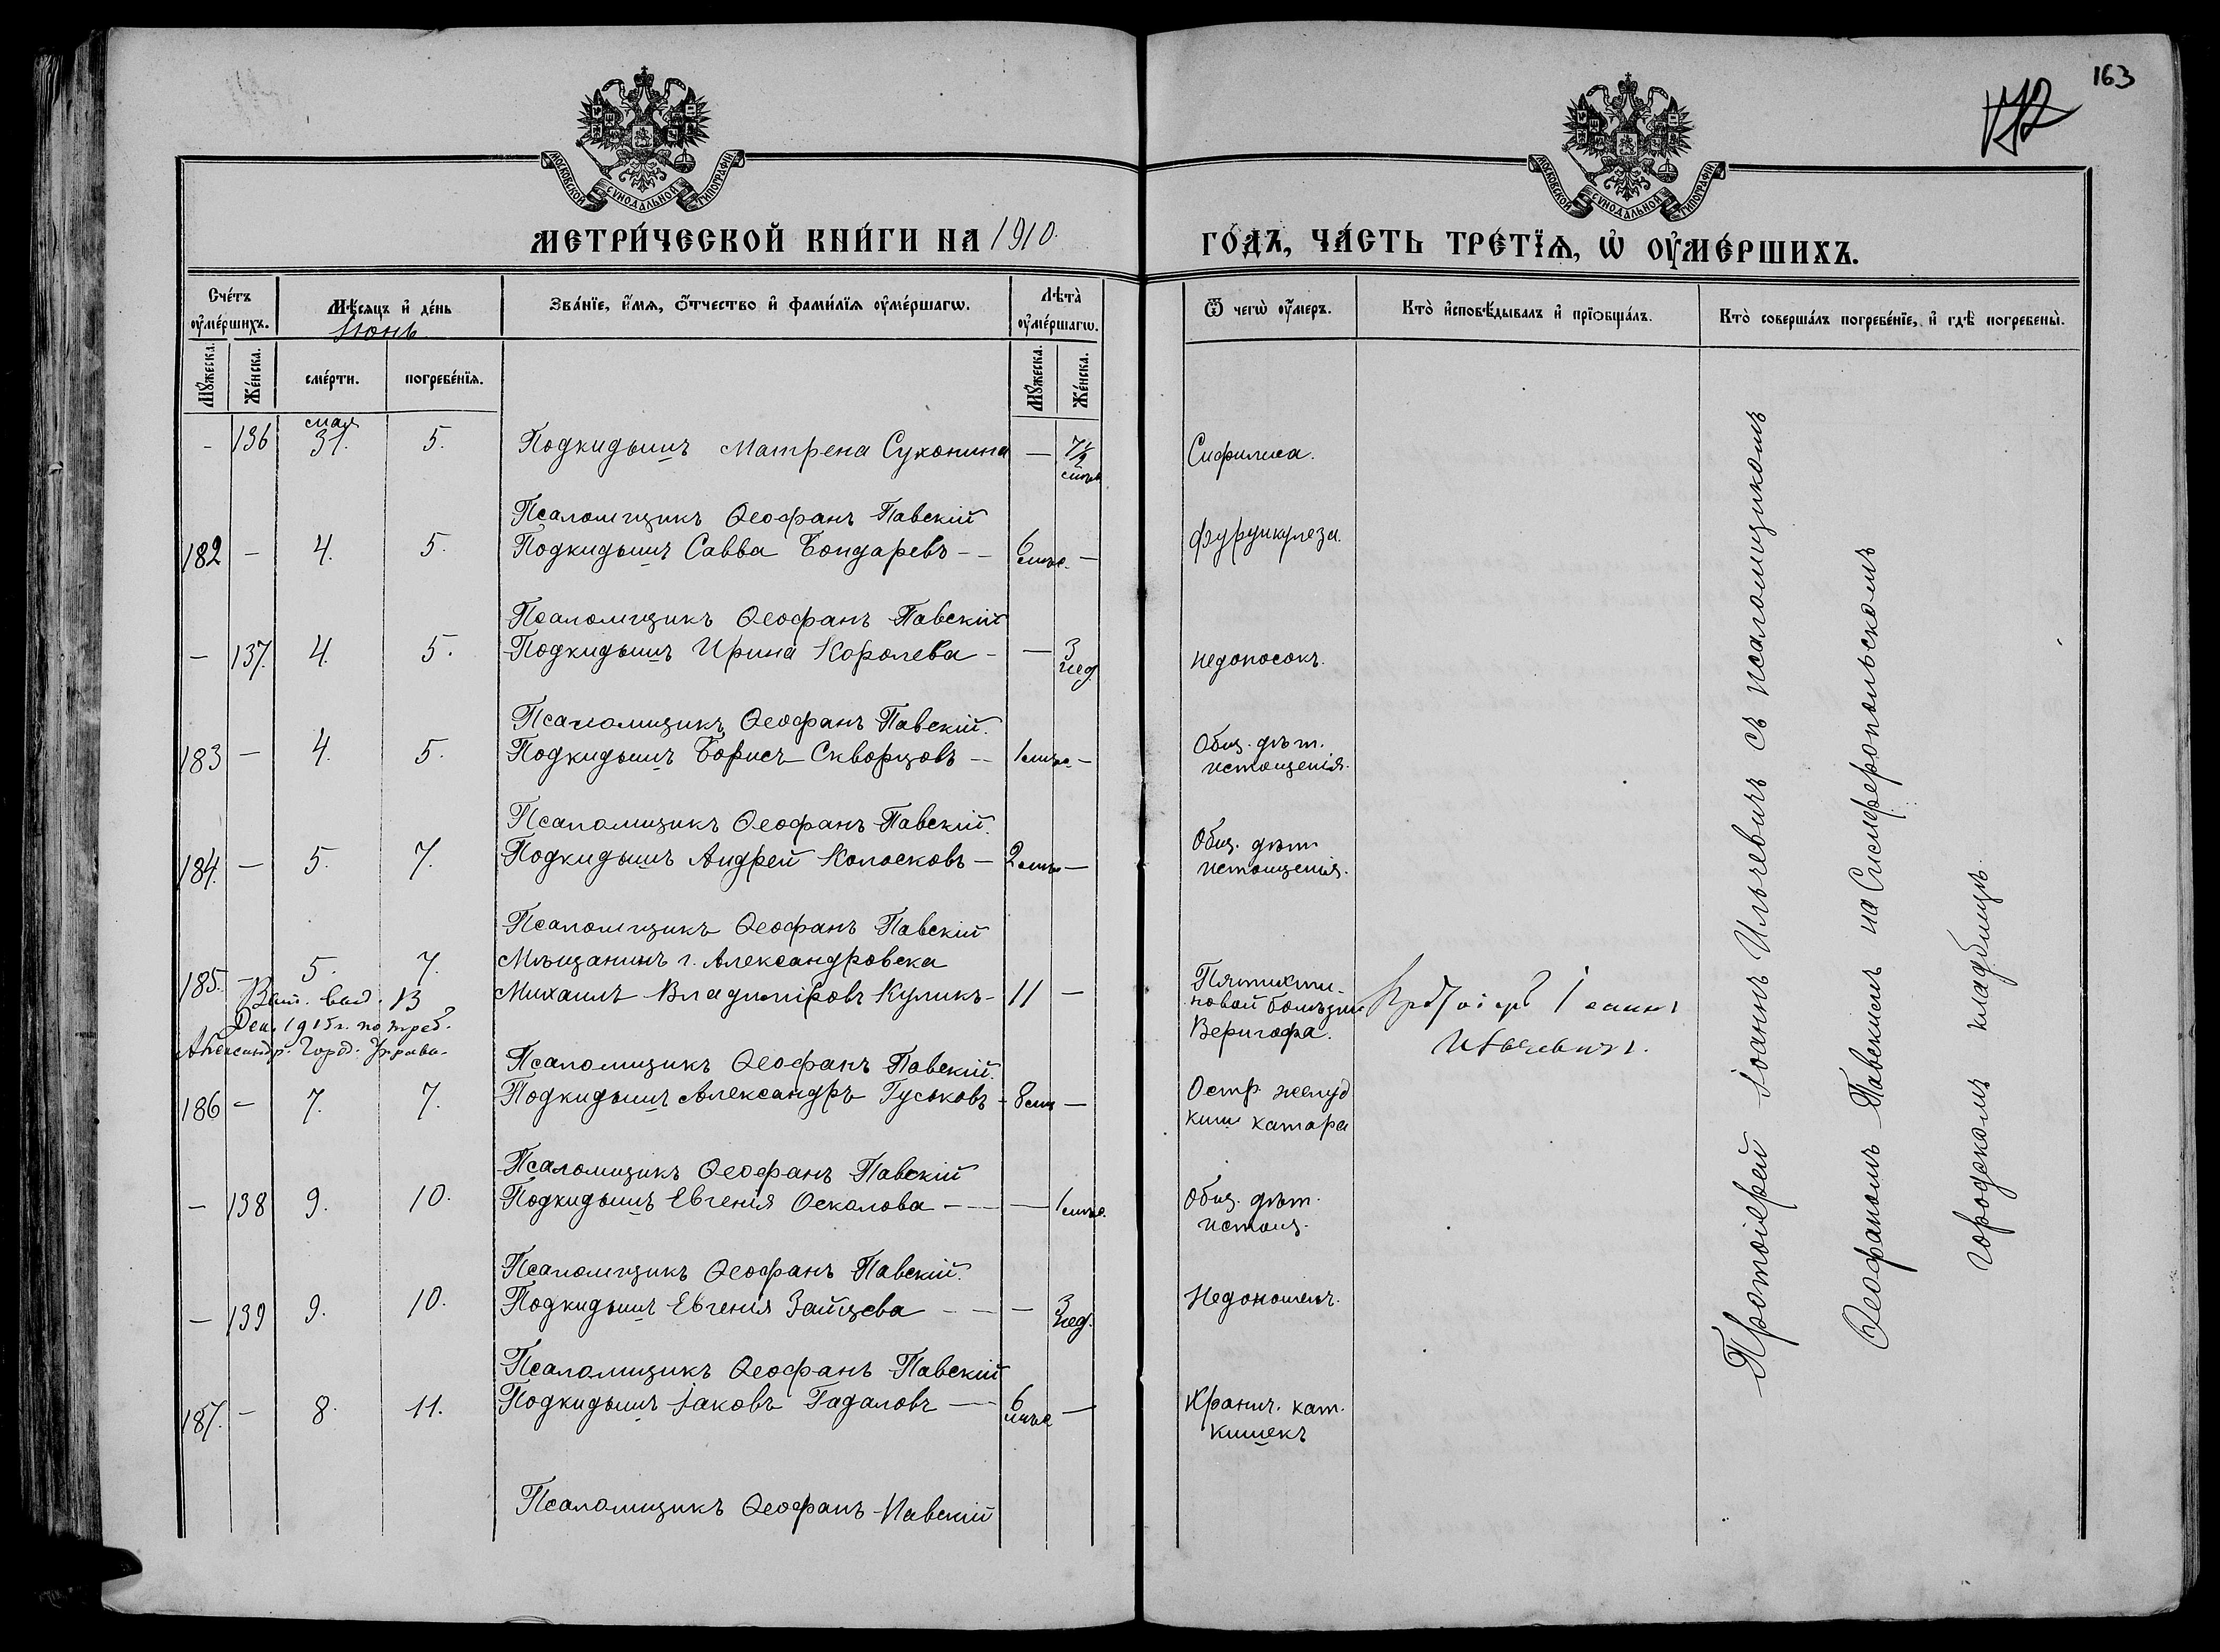 163
МОСКОВСКОЙ СѴНОДАЛЬНОЙ ТИПОГРАФІИ.
МОСКОВСКОЙ СѴНОДАЛЬНОЙ ТИПОГРАФІИ.
МЕТРИ́ЧЕСКОЙ КНИ́ГИ НА 1910.
ГО́ДЪ, ЧА́СТЬ ТРЕ́ТЇѦ, Ѡ҆ ОУ҆МЕ́РШИХЪ.
Сче́тъ оу҆ме́ршихъ.
Мѣ́сяцъ и҆ де́нь
Іюнь
Зва́нїе, и҆́мѧ, ѻ҆́тчество и҆ фами́лїѧ оу҆ме́ршагѡ.
Лѣта̀ оу҆ме́ршагѡ.
Ѿ чегѡ̀ оу҆́меръ.
Кто̀ и҆сповѣ́дывалъ и҆ прїѻбща́лъ.
Кто̀ соверша́лъ погребе́нїе, и҆ гдѣ̀ погребены̀.
Мꙋ́жеска.
Же́нска.
сме́рти.
погребе́нїѧ.
Мꙋ́жеска.
Же́нска.
- 136 мая 31. 5. Подкидышъ Матрена Сухонина — 7½ мѣс. Сифилиса.
Псаломщикъ Ѳеофанъ Павскій
182 — 4. 5. Подкидышъ Савва Бондаревъ - - 6 мѣс. — Фурункулеза.
Псаломщикъ Ѳеофанъ Павскій
— 137. 4. 5. Подкидышъ Ирина Королева - — 3 нед. недоносокъ.
Псаломщикъ Ѳеофанъ Павскій.
183 — 4. 5. Подкидышъ Борисъ Скворцовъ - - 1 мѣс. — Общ. дѣт. истощенія.
Псаломщикъ Ѳеофанъ Павскій.
184. — 5. 7. Подкидышъ Андрей Колосковъ — 2 мѣс — Общ. дѣт истощенія.
Псаломщикъ Ѳеофанъ Павскій
185. — 5. 7. Мѣщанинъ г. Александровска
Михаилъ Владиміровъ Куликъ - 11 — Пятнистиновой болѣзни Верлгофа. Протоіерей Іоаннъ Ильчевичъ.
выд. 13
Дек. 1915 г. по треб.
Александр. Город. Управы.
Псаломщикъ Ѳеофанъ Павскій.
186 — 7. 7. Подкидышъ Александръ Гуськовъ - 8 мѣс — Остр желуд киш катара
Псаломщикъ Ѳеофанъ Павскій
— 138 9. 10. Подкидышъ Евгенія Оскалова - - - — 1 мѣс. Общ. дѣт. истощ.
Псаломщикъ Ѳеофанъ Павскій.
— 139 9. 10. Подкидышъ Евгенія Зайцева - - — 3 нед. Недоношен.
Псаломщикъ Ѳеофанъ Павскій
187. — 8. 11. Подкидышъ Іаковъ Гадаловъ - - 6 мѣс — Хронич. кат. кишекъ
Псаломщикъ Ѳеофанъ Павскій
Протоіерей Іоаннъ Ильчевичъ съ псаломщикомъ
Ѳеофаномъ Павскимъ на Симферопольскомъ
городскомъ кладбищѣ.